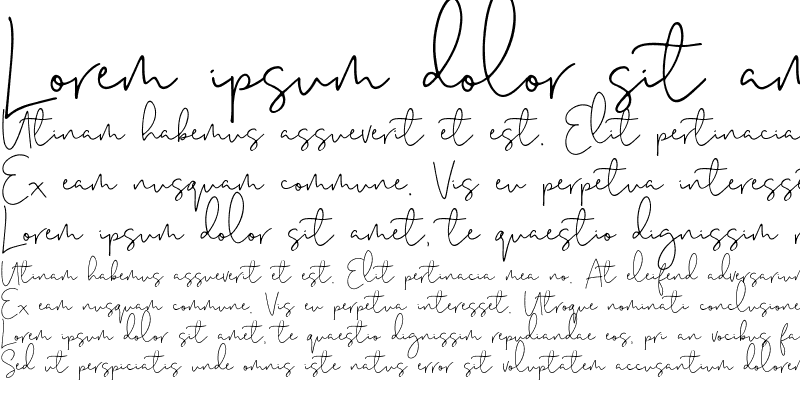 Lorem ipsum dolor sit am
Utinam habemus assueverit et est. Elit pertinacia
Ex eam nusquam commune. Vis eu perpetua interesse
Lorem ipsum dolor sit amet, te quaestio dignissim r
Utinam habemus assueverit et est. Elit pertinacia mea no. At eleifend adversarium
Ex eam nusquam commune. Vis eu perpetua interesset. Utroque nominati conclusione
Lorem ipsum dolor sit amet, te quaestio dignissim repudiandae eos, pri an vocibus fa
Sed ut perspiciatis unde omnis iste natus error sit voluptatem accusantium dolorem